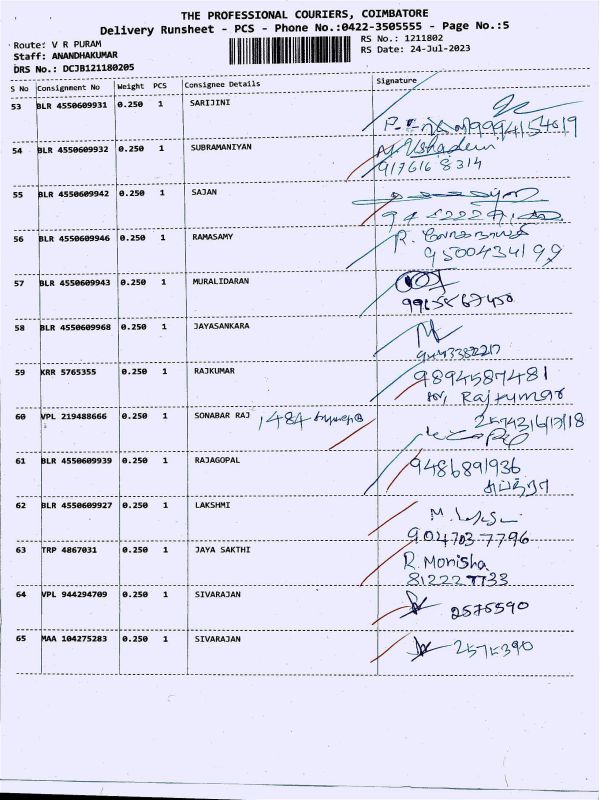 THE PROFESSIONAL COURIERS, COIMBATORE
Delivery Runsheet - PCS - Phone No.:0422-3505555 - Page No.:5
Route: V R PURAM RS No.: 1211802
Staff: ANANDHAKUMAR RS Date: 24-Jul-2023
DRS No.: DCJB121180205
S No Consignment No Weight PCS Consignee Details Signature
53 BLR 4550609931 0.250 1 SARIJINI
9994154019
54 BLR 4550609932 0.250 1 SUBRAMANIYAN
917616 8314
55 BLR 4550609942 0.250 1 SAJAN
56 BLR 4550609946 0.250 1 RAMASAMY R.
9500434199
57 BLR 4550609943 0.250 1 MURALIDARAN
58 BLR 4550609968 0.250 1 JAYASANKARA
9443382217
59 KRR 5765355 0.250 1 RAJKUMAR 9894587481
for, Rajkumar
60 VPL 219488666 0.250 1 SONABAR RAJ 1484
61 BLR 4550609939 0.250 1 RAJAGOPAL 9486891936
62 BLR 4550609927 0.250 1 LAKSHMI M.
904703 7796
63 TRP 4867031 0.250 1 JAYA SAKTHI R. Monisha
81222 7733
64 VPL 944294709 0.250 1 SIVARAJAN 2575590
65 MAA 104275283 0.250 1 SIVARAJAN 2575390